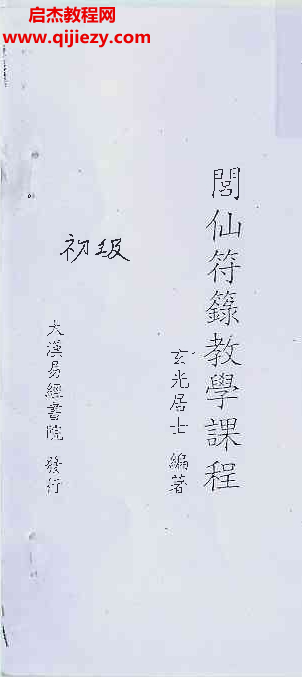 启杰教程网
www.qijiezy.com
閭仙符籙教學課程
玄光居士 編著
初級
大漢易經書院 發行